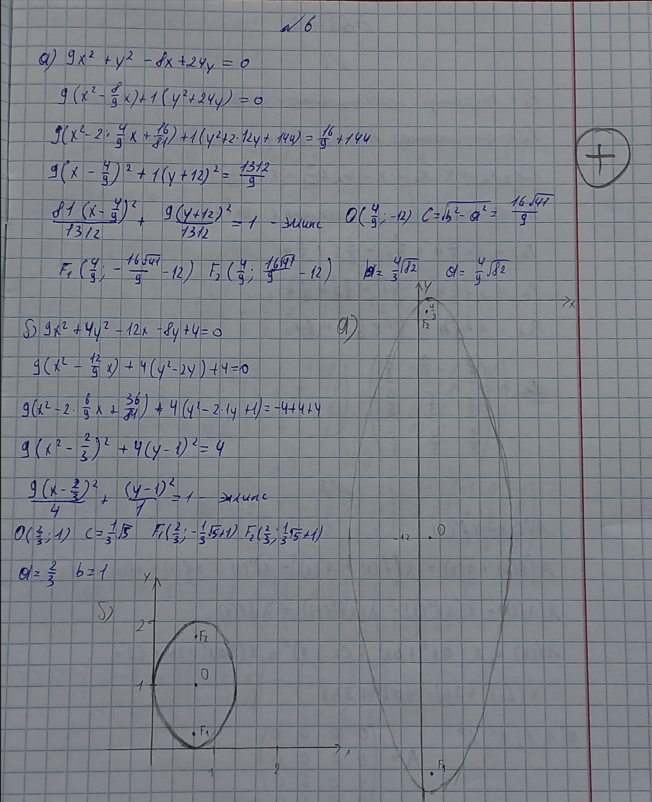 №6
а) 9x² + y² - 8x + 24y = 0
9(x² - 8/9 x) + 1(y² + 24y) = 0
9(x² - 2·4/9 x + 16/81) + 1(y² + 2·12y + 144) = 16/9 + 144
9(x - 4/9)² + 1(y + 12)² = 1312/9
81(x - 4/9)²/1312 + 9(y+12)²/1312 = 1 - эллипс O(4/9; -12) C = √(b² - a²) = 16√41/9
F₁(4/9; -16√41/9 - 12) F₂(4/9; 16√41/9 - 12) b = 4/3 √82 a = 4/9 √82
б) 9x² + 4y² - 12x - 8y + 4 = 0
9(x² - 12/9 x) + 4(y² - 2y) + 4 = 0
9(x² - 2·6/9 x + 36/81) + 4(y² - 2·1y + 1) = -4+4+4
9(x² - 2/3)² + 4(y - 1)² = 4
9(x - 2/3)²/4 + (y-1)²/1 = 1 - эллипс
O(2/3; 1) C = 1/3 √5 F₁(2/3; -1/3 √5+1) F₂(2/3; 1/3 √5+1)
a = 2/3 b = 1
а)
y
x
F₂
-12
O
F₁
б)
y
2
F₂
1
O
F₁
1
2
x
+